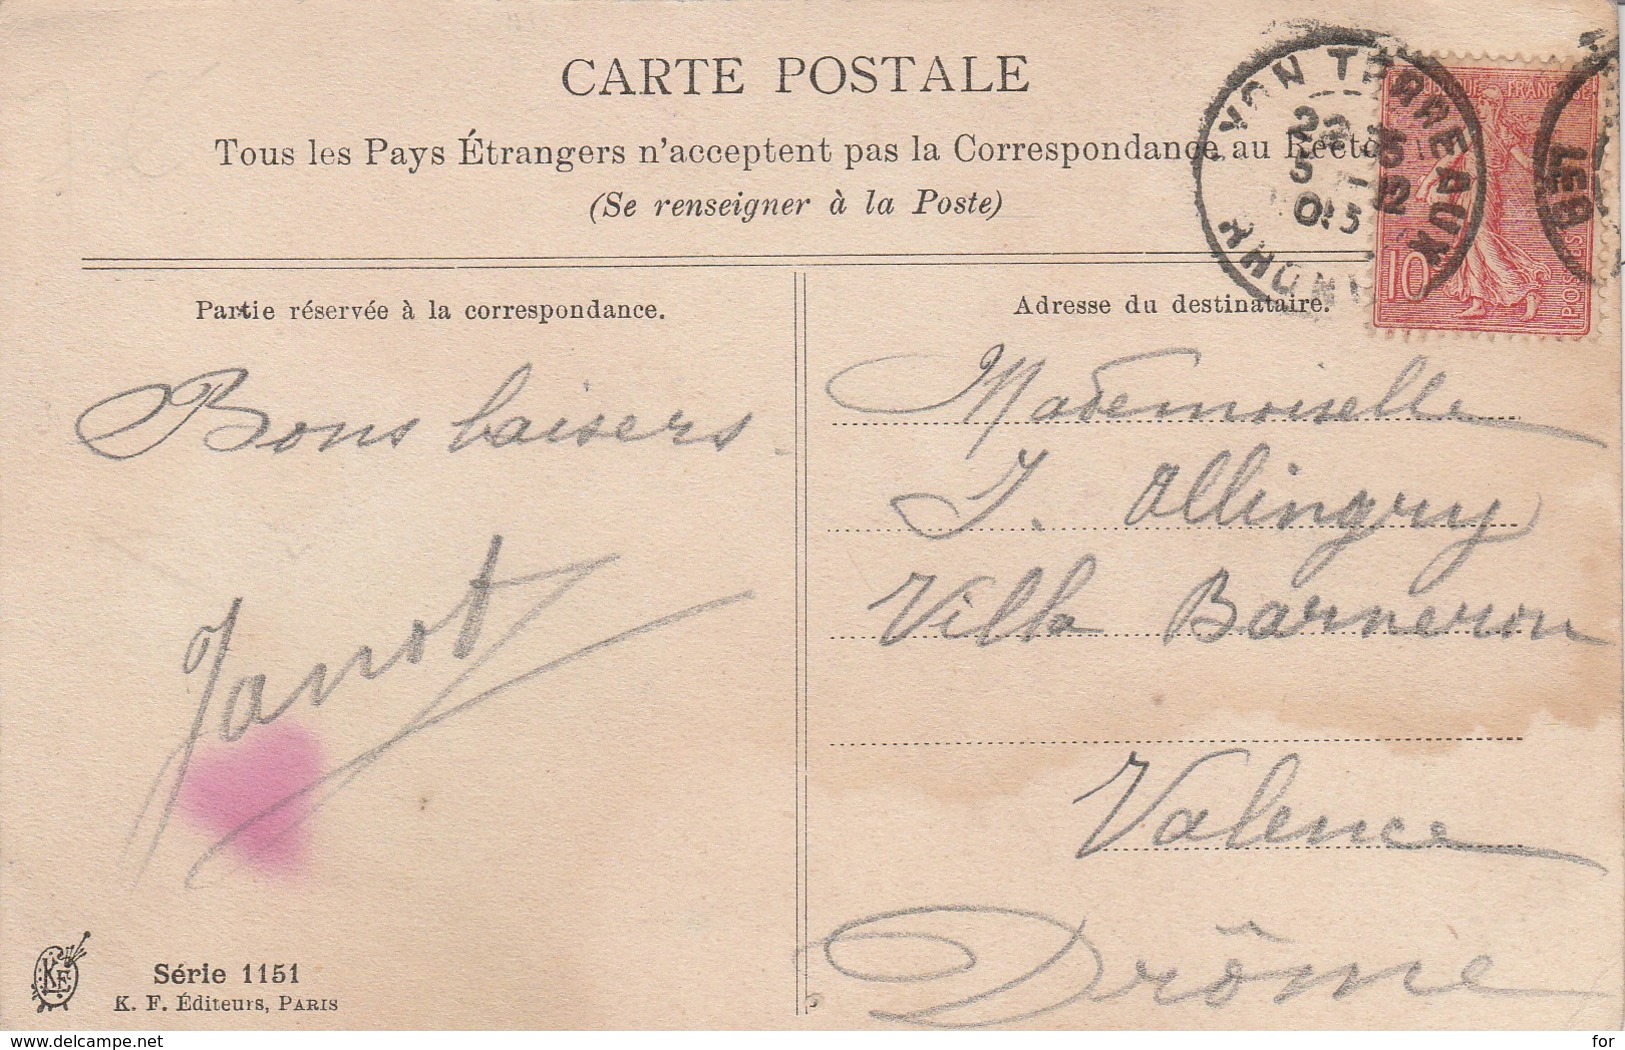 CARTE POSTALE
Tous les Pays Étrangers n'acceptent pas la Correspondance au Recto
(Se renseigner à la Poste)
YON TERREAUX
RHONE
RÉPUBLIQUE FRANÇAISE
10
POSTES
Partie réservée à la correspondance.
Bons baisers
Janot
Série 1151
K. F. Éditeurs, PARIS
KF
Adresse du destinataire.
Mademoiselle
J. Ollingry
Villa Barneron
Valence
Drôme
www.delcampe.net
for